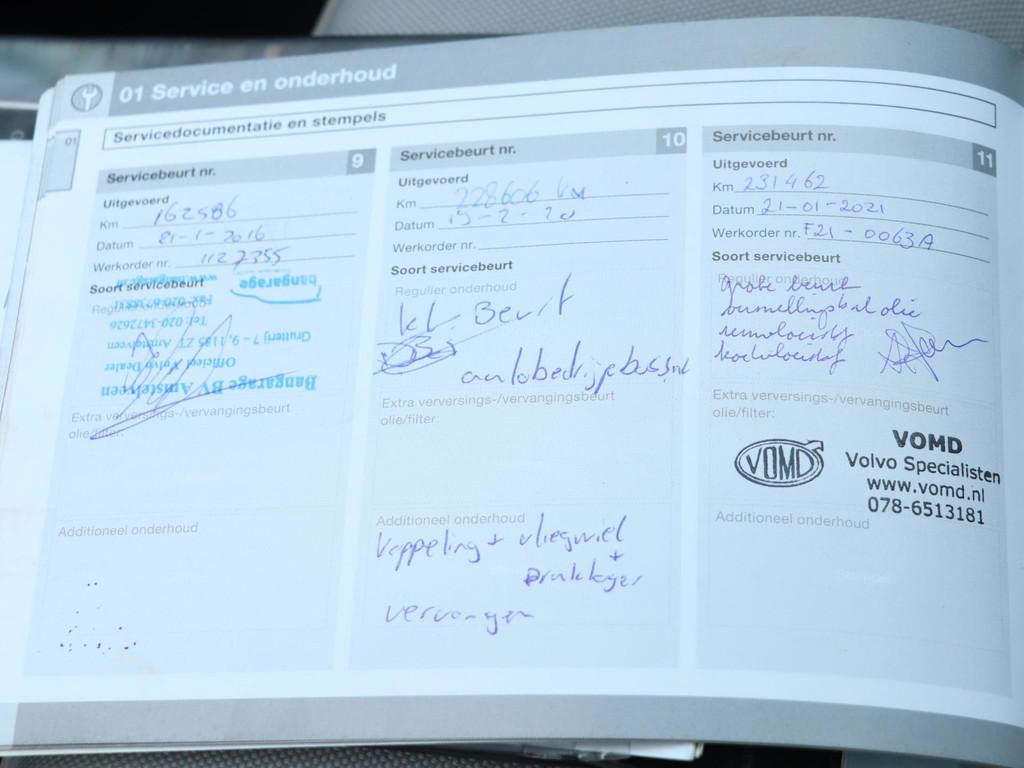 01 Service en onderhoud
01
Servicedocumentatie en stempels
Servicebeurt nr. 9
Uitgevoerd
Km 162586
Datum 21-1-2016
Werkorder nr. 1127355
Soort servicebeurt
Regulier onderhoud
bangarage
Tel. 020-3472626
Grutterij 7 - 9, 1185 ZT Amstelveen
Officieel Volvo Dealer
Bangarage BV Amstelveen
Extra verversings-/vervangingsbeurt
olie/filter:
Additioneel onderhoud
Servicebeurt nr. 10
Uitgevoerd
Km 228606 km
Datum
Werkorder nr.
Soort servicebeurt
Regulier onderhoud
kl. Beurt
autobedrijfbas.nl
Extra verversings-/vervangingsbeurt
olie/filter:
Additioneel onderhoud
Koppeling + vliegwiel
+
Druklager
vervangen
Servicebeurt nr. 11
Uitgevoerd
Km 231462
Datum 21-01-2021
Werkorder nr. F21-0063A
Soort servicebeurt
Regulier onderhoud
grote beurt
versnellingsbak olie
remvloeistof
koelvloeistof
Extra verversings-/vervangingsbeurt
olie/filter:
VOMD
VOMD
Volvo Specialisten
www.vomd.nl
078-6513181
Additioneel onderhoud